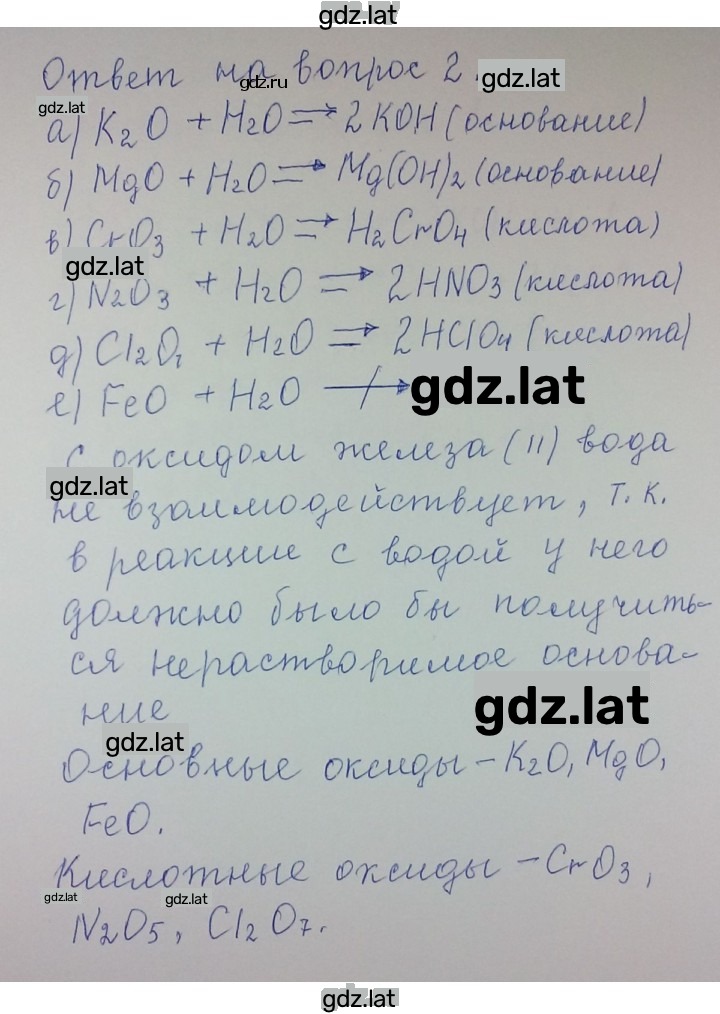 gdz.lat
Ответ на вопрос 2.
gdz.ru
gdz.lat
gdz.lat
а) K2O + H2O ⇒ 2KOH (основание)
б) MgO + H2O ⇒ Mg(OH)2 (основание)
в) CrO3 + H2O ⇒ H2CrO4 (кислота)
gdz.lat
г) N2O3 + H2O ⇒ 2HNO3 (кислота)
д) Cl2O7 + H2O ⇒ 2HClO4 (кислота)
е) FeO + H2O ↛
gdz.lat
с оксидом железа (II) вода
gdz.lat
не взаимодействует, т.к.
в реакцие с водой у него
должно было бы получить-
ся нерастворимое основа-
ние
gdz.lat
gdz.lat
Основные оксиды – K2O, MgO,
FeO.
Кислотные оксиды – CrO3,
gdz.lat
gdz.lat
N2O5, Cl2O7.
gdz.lat